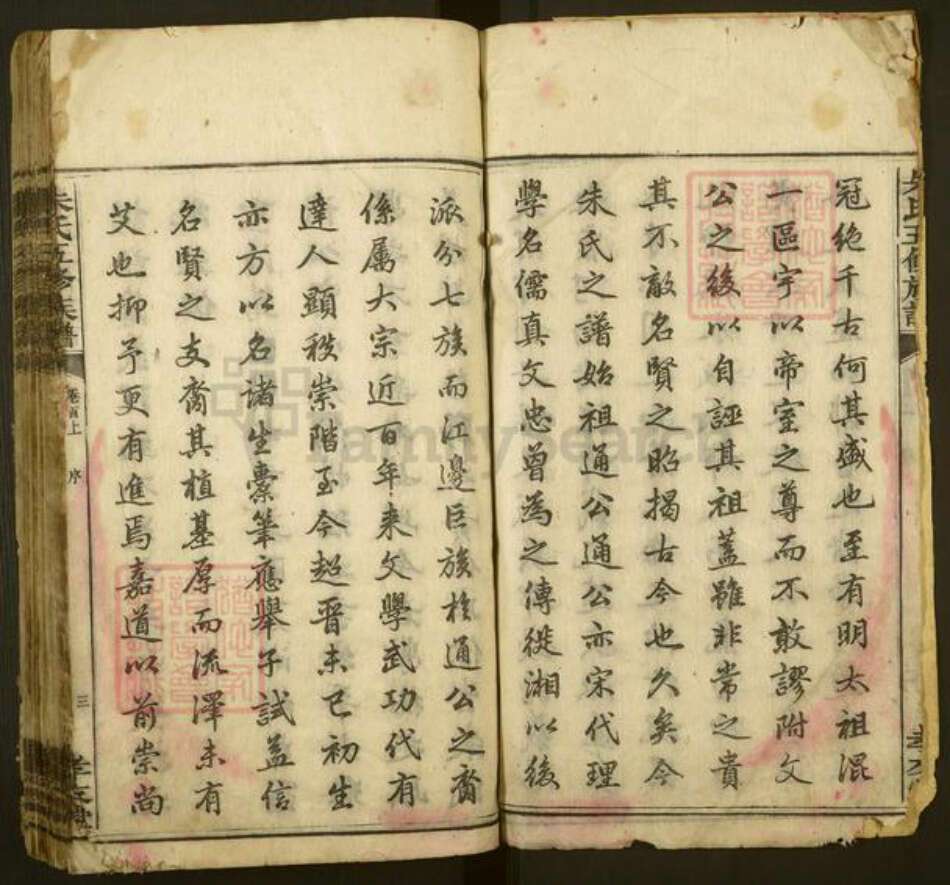 冠絶千古何其盛也至有明太祖混
一區宇以帝室之尊而不敢謬附文
公之後以自誣其祖蓋雖非常之貴
其不敵名賢之昭揭古今也久矣今
朱氏之譜始祖通公通公亦宋代理
學名儒真文忠曾為之傳徙湘以後
派分七族而江邊巨族於通公之裔
係屬大宗近百年来文學武功代有
達人顯秩崇階至今超晋未已初生
亦方以名諸生橐筆應舉子試益信
名賢之支裔其植基厚而流澤未有
艾也抑予更有進焉嘉道以前崇尚
朱氏五修族譜
卷首上
序
三
FamilySearch